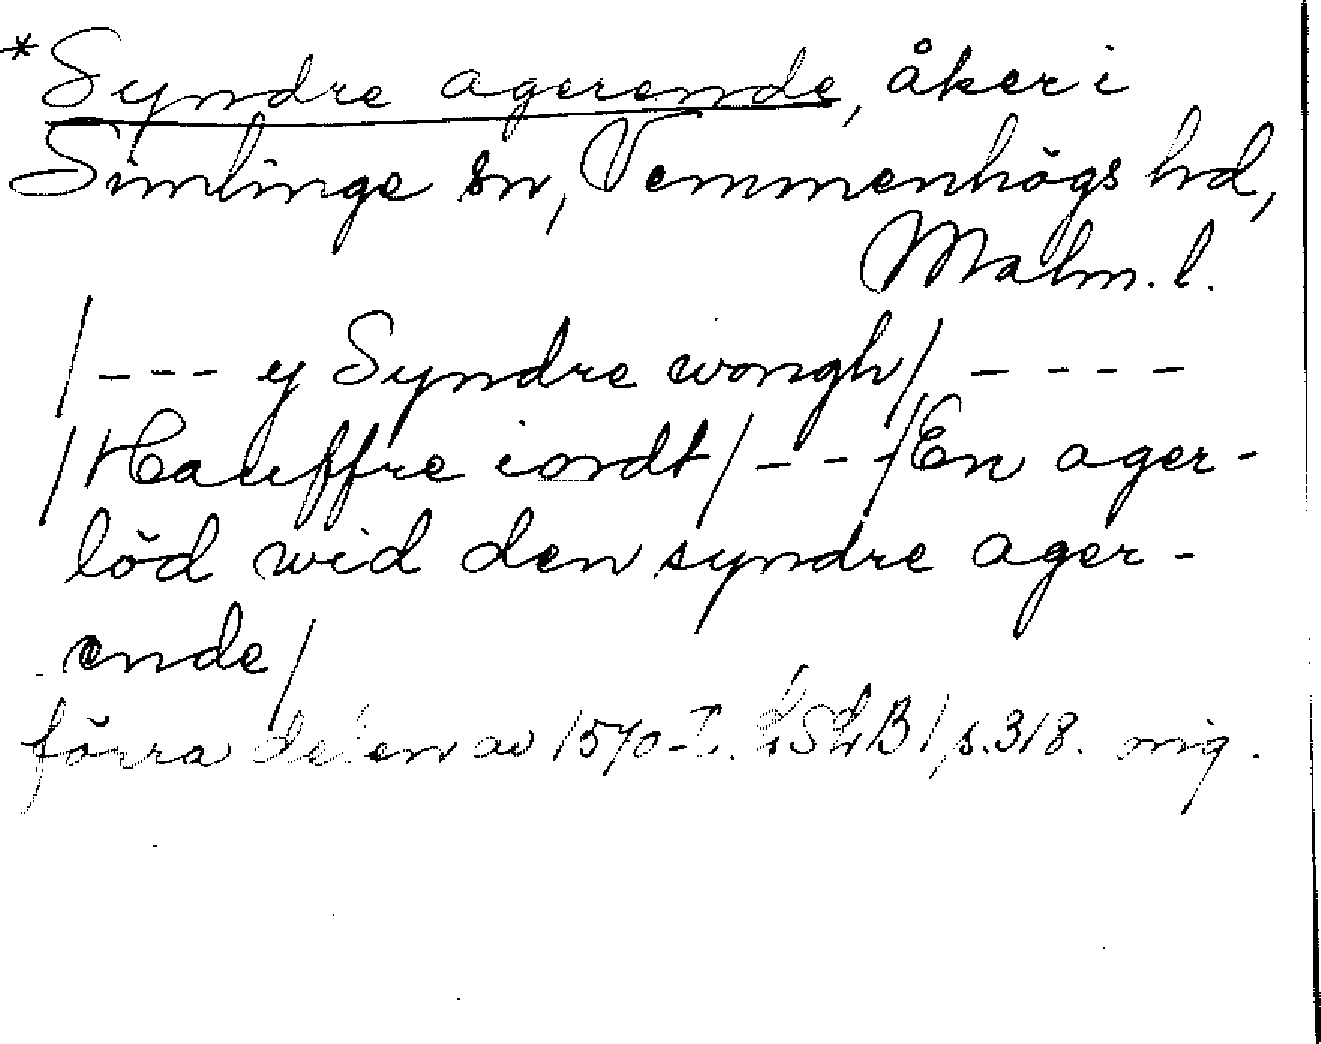 *Syndre agerende, åker i
Simlinge sn, Vemmenhögs hd,
Malm. l.
/--- y Syndre wongh/ ----
/Hauffre iordt/---/En ager-
löd wid den syndre ager-
ende/
förra delen av 1570-T. LSLB 1, s. 318. orig.